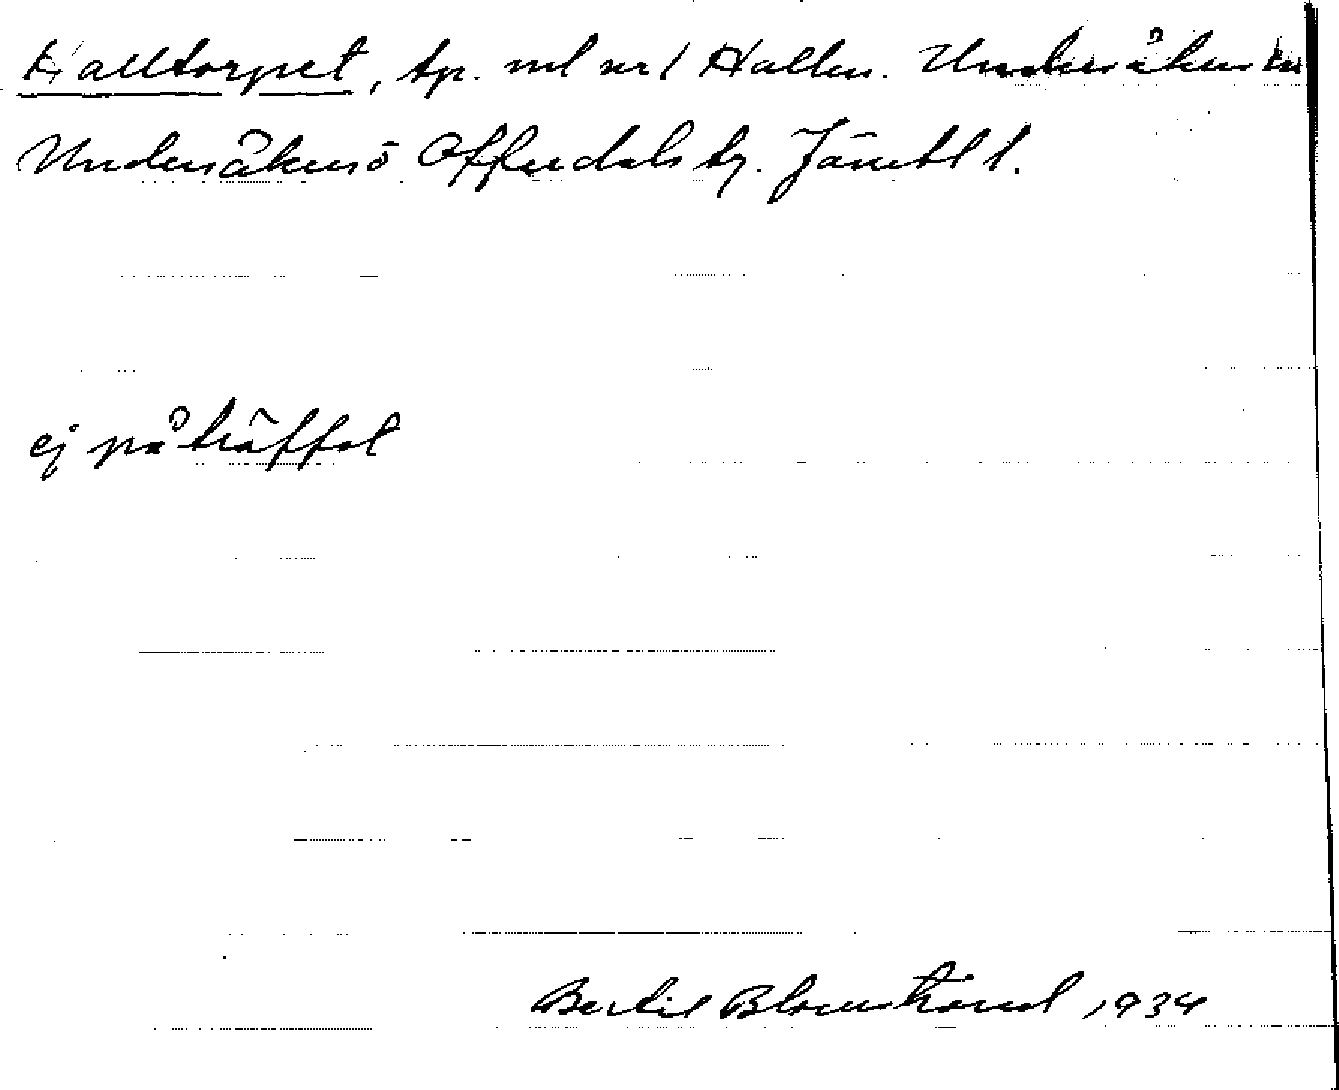 Kalltorpet, tp. ml nr 1 Hallen. Undersåkers
Undersåkers o Offerdals tg. Jämtl l.
ej påträffad
Bertil Blomstrand, 1934